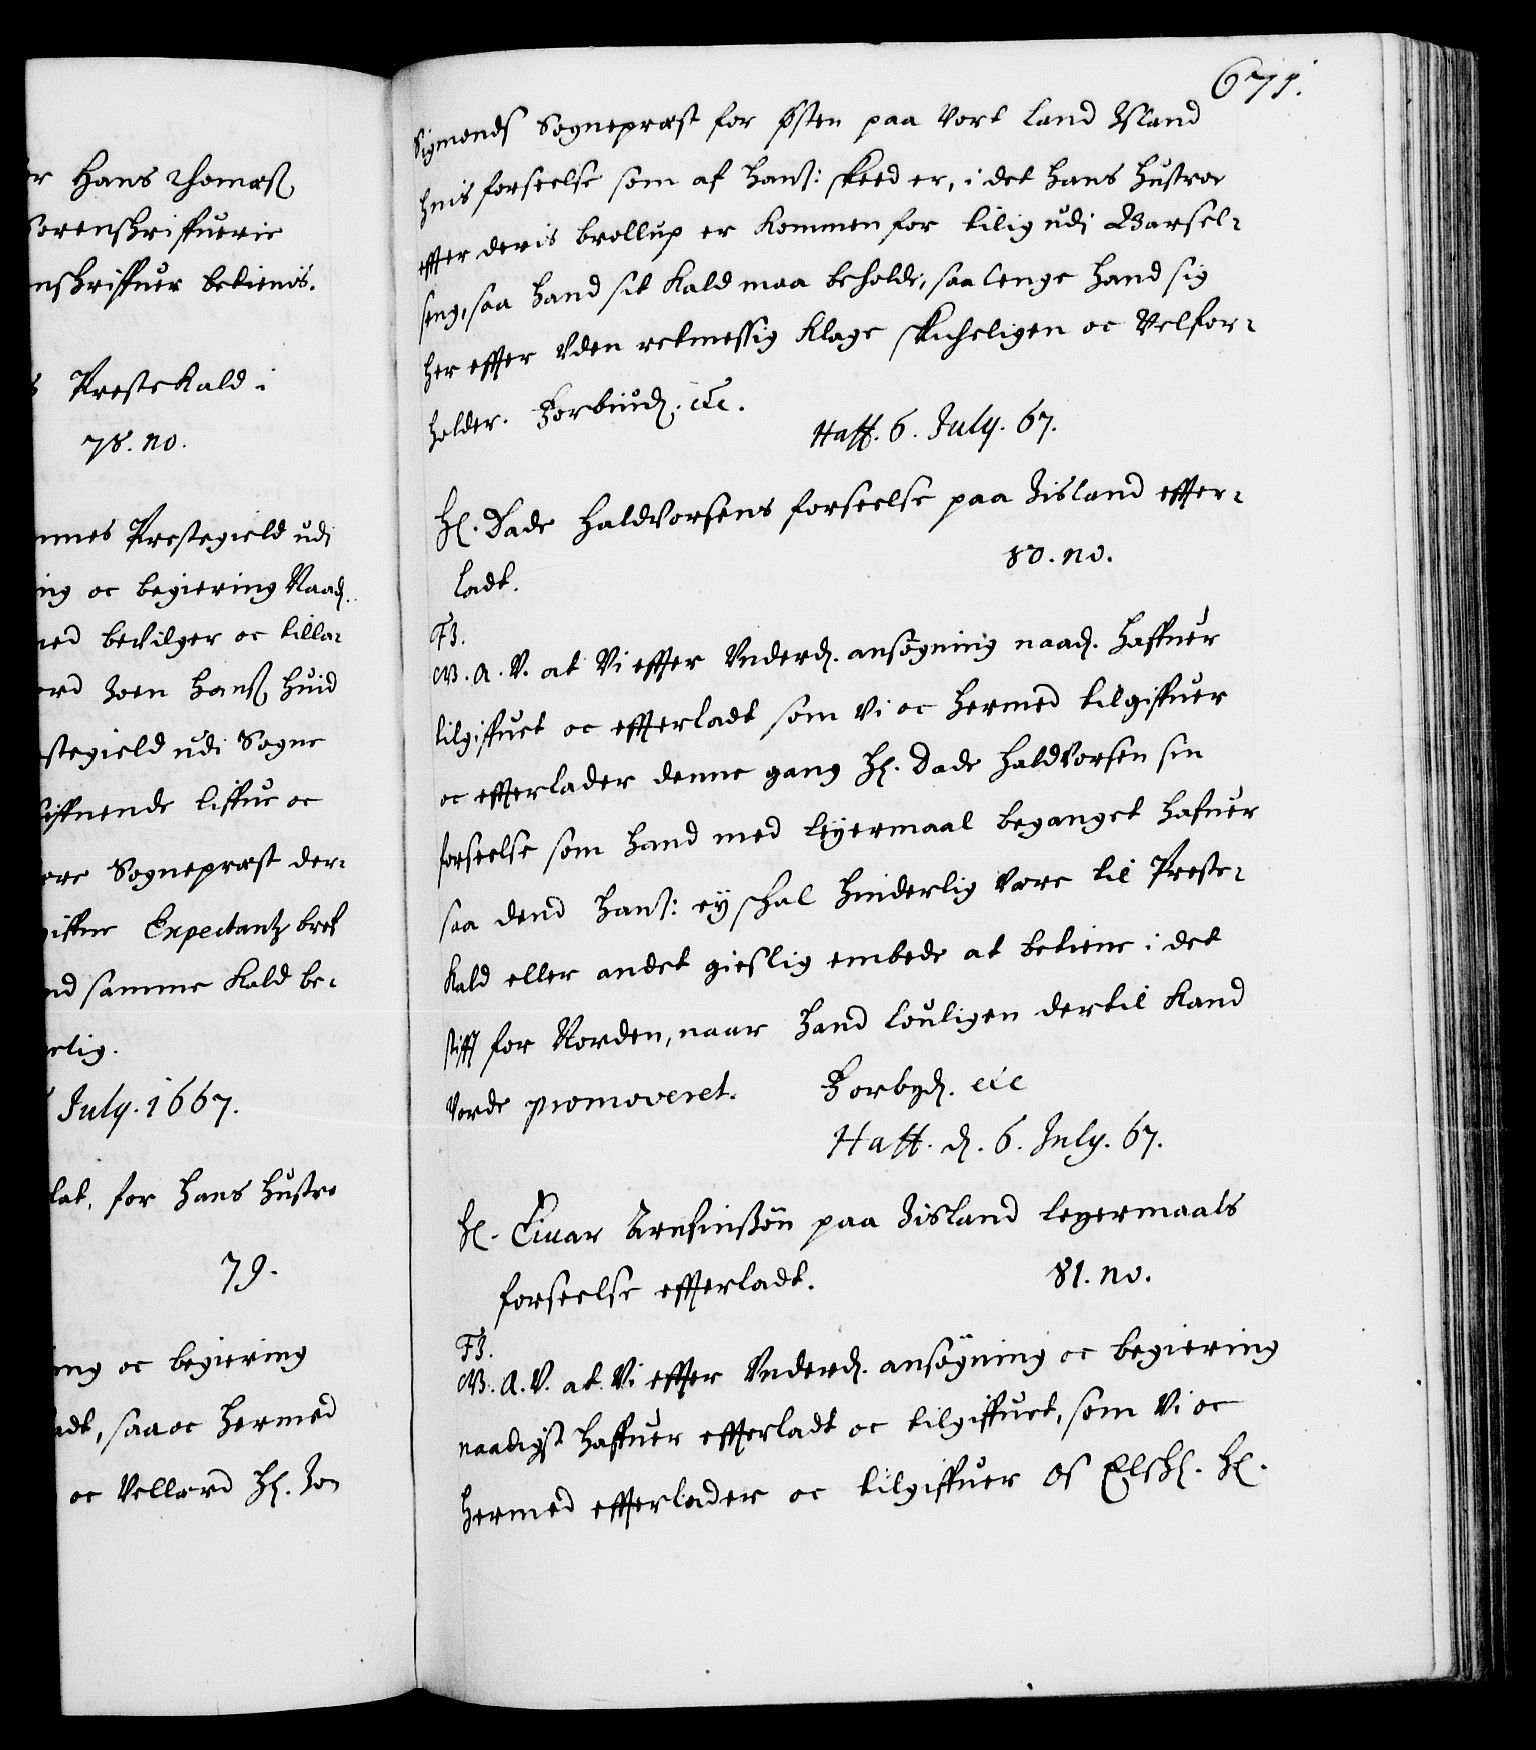 er Hans Thomæs
Sorenskriffuerie
nskriffuer betienis.
s Preste Kald i
78. no.
mmes Prestegield udi
ing oc begiering Naad.
med bevilger oc tilla-
erd Joen Hans Huid
estegield udi Sogne
liffuende liffue oc
ere Sogneprest der-
giffne Expectantz bref
nd samme Kald be-
elig.
July. 1667.
lat, for Hans Hustro
79.
ing oc begiering
adt, saa oc hermed
oc Vellærd H. Jo-
671.
Sigmonds Sogneprest for Østen paa Vort Land Island
huis forseelse som af hans: skeed er, i det hans Hustroe
effter deris brøllup er kommen for tilig udi Barsel-
seng, saa hand sit Kald maa beholde, saa lenge hand sig
her effter Vden retmessig Klage skicheligen oc Velfor-
holder. Forbiud. etc.
Haff. 6. July. 67.
H. Dade Haldvorsens forseelse paa Jisland effter-
ladt.
80. no.
F3.
G.A.V. at Vi effter Vnderd. ansøgning naad. haffuer
tilgiffuet oc effterladt som Vi oc hermed tilgiffuer
oc effterlader denne gang H. Dade Haldvorsen sin
forseelse som hand med leyermaal beganget hafuer
saa dend hans: ey schal hinderlig være til Preste-
Kald eller andet gieslig embede at betiene i det
stifft for Norden, naar hand louligen dertil kand
vorde promoveret. Forbyd. etc
Haff. d. 6. July. 67.
H. Einar Arnfinssøn paa Jisland leyermaals
forseelse effterladt.
81. no.
F3.
G.A.V. at Vi effter Vnderd. ansøgning oc begiering
naadigst haffuer effterladt oc tilgiffuet, som Vi oc
hermed effterlader oc tilgiffuer Os Elskl. H.